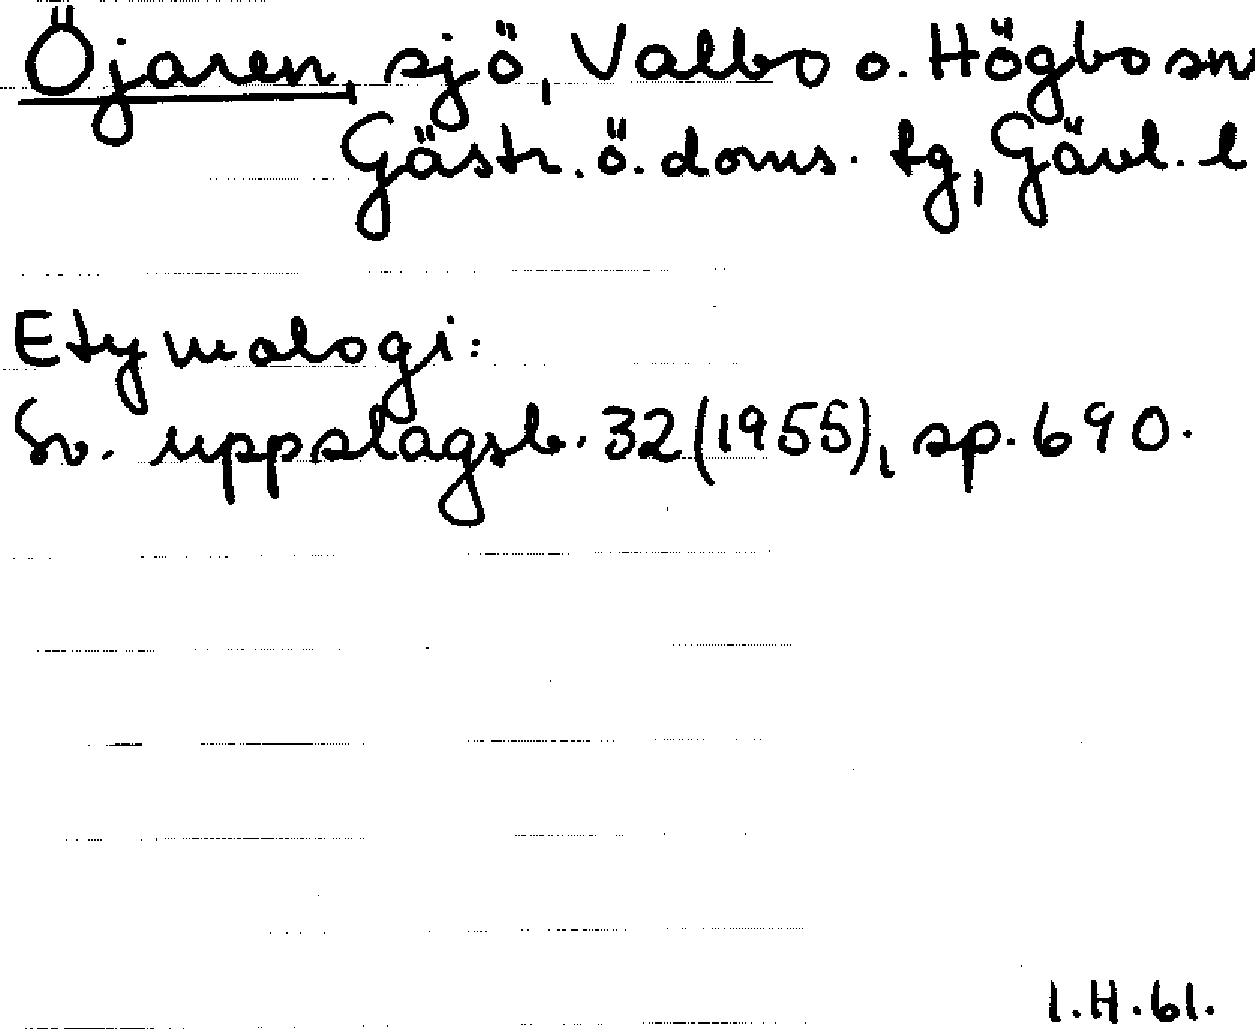 Öjaren, sjö, Valbo o. Högbo sn
Gästr. ö. doms. tg, Gävl. l
Etymologi:
Sv. uppslagsb. 32 (1955), sp. 690.
I.H.61.